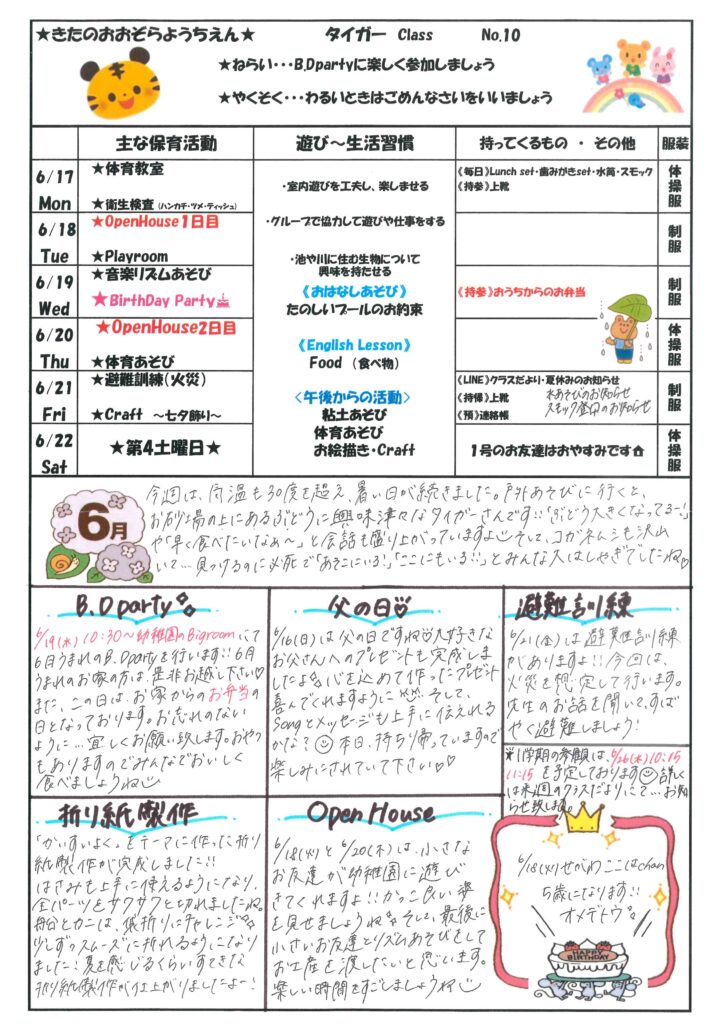 ★きたのおおぞらようちえん★ タイガー Class No.10
★ねらい・・・B.Dpartyに楽しく参加しましょう
★やくそく・・・わるいときはごめんなさいをいいましょう
主な保育活動 遊び～生活習慣 持ってくるもの ・ その他 服装
6/17 Mon
★体育教室
★衛生検査（ハンカチ・ツメ・ティッシュ）
《毎日》Lunch set・歯みがきset・水筒・スモック
《持参》上靴
体操服
6/18 Tue
★OpenHouse1日目
★Playroom
制服
6/19 Wed
★音楽リズムあそび
★BirthDay Party
《持参》おうちからのお弁当
制服
6/20 Thu
★OpenHouse2日目
★体育あそび
体操服
6/21 Fri
★避難訓練（火災）
★Craft ～七夕飾り～
《LINE》クラスだより・夏休みのお知らせ
水あそびのお知らせ
《持帰》上靴
スモック登園のお知らせ
《預》連絡帳
制服
6/22 Sat
★第4土曜日★
1号のお友達はおやすみです
体操服
・室内遊びを工夫し、楽しませる
・グループで協力して遊びや仕事をする
・池や川に住む生物について
興味を持たせる
《おはなしあそび》
たのしいプールのお約束
《English Lesson》
Food （食べ物）
<午後からの活動>
粘土あそび
体育あそび
お絵描き・Craft
6月
今週は、気温も30度を超え、暑い日が続きました。戸外あそびに行くと、
お砂場の上にあるぶどうに興味津々なタイガーさんです!!「ぶどう大きくなってるー!」
や「早く食べたいなぁ～」と会話も盛り上がっていますよ そして、コガネムシも沢山
いて…見つけるのに必死で「あそこにいる!」「ここにもいる!!」とみんな大はしゃぎでしたね♡
B.Dparty
6/19(水) 10:30～幼稚園のBigroomにて
6月うまれのB.Dpartyを行います!! 6月
うまれのお家の方は、是非お越し下さい♡
また、この日は、お家からのお弁当の
日となっております。お忘れのない
ように…宜しくお願い致します。おやつ
もありますのでみんなでおいしく
食べましょうね
父の日♡
6/16(日)は父の日ですね♡大好きな
お父さんへのプレゼントも完成しま
したよ 心を込めて作ったプレゼント
喜んでくれますように そして、
Songとメッセージも上手に伝えれる
かな? 本日、持ち帰っていますので
楽しみにされていて下さい♡♡
避難訓練
6/21(金)は避難訓練
がありますよ!! 今回は、
火災を想定して行います。
先生のお話を聞いて、すば
やく避難しましょう!
*1学期の参観は、6/26(水)10:15
11:15を予定しております 詳しく
は来週のクラスだよりにて…お知
らせ致します。
折り紙製作
「かいすいよく」をテーマに作った折り
紙製作が完成しました!!
はさみも上手に使えるようになり、
全パーツをサクサクと切れましたね。
船とカニは、紙折りにチャレンジ
少しずつスムーズに折れるようになり
ました! 夏を感じるくらいすてきな
折り紙製作が仕上がりましたよー!
Open House
6/18(火)と6/20(木)は、小さな
お友達が幼稚園に遊び
きてくれますよ!! かっこ良い姿
を見せましょうね そして、最後に
小さいお友達とリズムあそびをして
お土産を渡したいと思います。
楽しい時間をすごしましょうね
6/18(火)せがわここはchan
5歳になります!!
オメデトウ
HAPPY BIRTHDAY